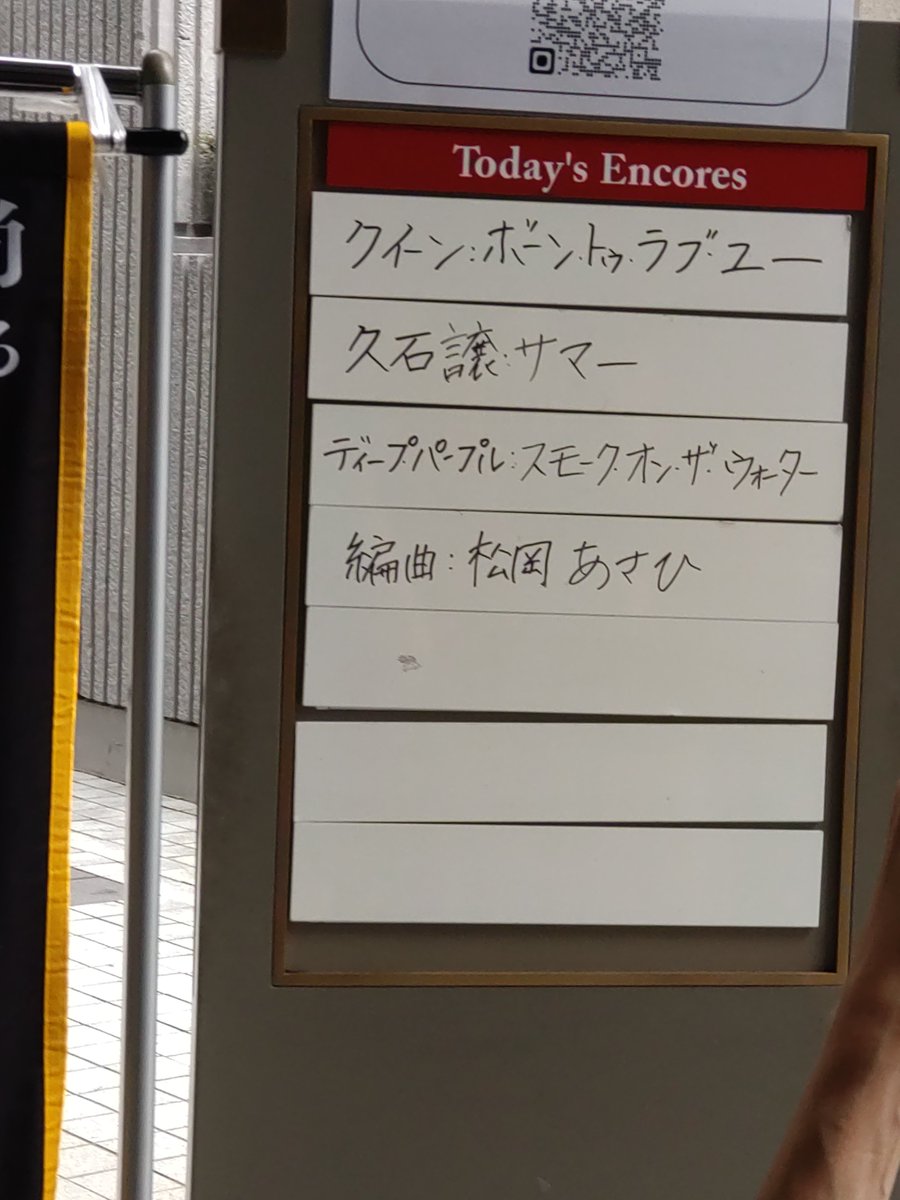 Today's Encores
クイーン:ボーン・トゥ・ラブ・ユー
久石譲:サマー
ディープ・パープル:スモーク・オン・ザ・ウォーター
編曲:松岡 あさひ